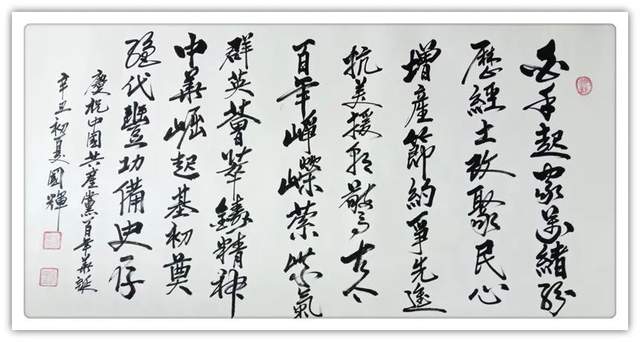 白手起家萬緒紛
歷經土改聚民心
增產節約爭先途
抗美援朝驚古今
百年崢嶸縈紫氣
群英薈萃鑄精神
中華崛起基初奠
絕代豐功備史存
慶祝中國共產黨百年華誕
辛丑初夏國輝